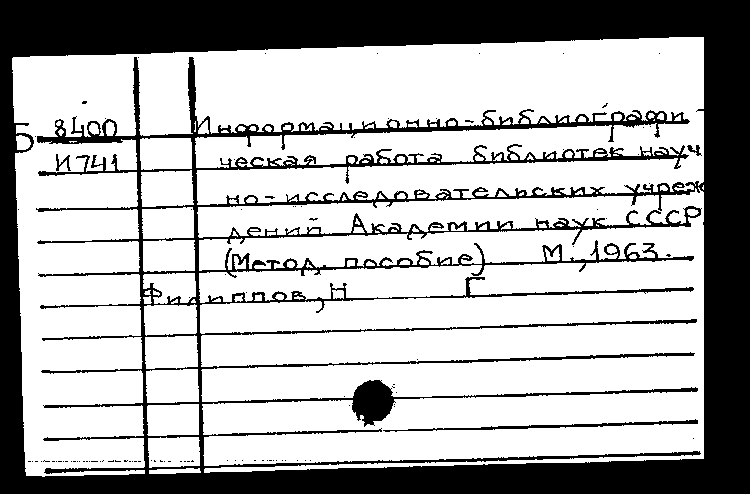 Б 8400 Информационно-библиографи-
И741 ческая работа библиотек науч
но-исследовательских учреж
дений Академии наук СССР.
(Метод. пособие) М., 1963.
Филиппов, Н Г